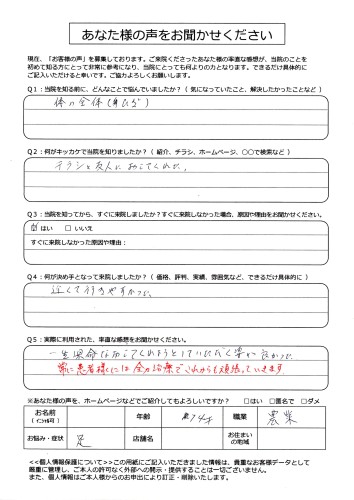 あなた様の声をお聞かせください
現在、「お客様の声」を募集しております。ご来院くださったあなた様の率直な感想が、当院のことを
初めて知る方にとって非常に参考になり、当院にとっても何よりの力となります。できるだけ具体的に
ご記入いただけると幸いです。ご協力よろしくお願いします。
Q1:当院を知る前に、どんなことで悩んでいましたか?( 気になっていたこと、解決したかったことなど )
体の全体(肩ひざ)
Q2:何がキッカケで当院を知りましたか?( 紹介、チラシ、ホームページ、〇〇で検索など )
チラシと友人に
Q3:当院を知ってから、すぐに来院しましたか?すぐに来院しなかった場合、原因や理由をお聞かせください。
はい □ いいえ
すぐに来院しなかった原因や理由:
Q4:何が決め手となって来院しましたか?( 価格、評判、実績、雰囲気など、できるだけ具体的に )
近くて行きやすかった、
Q5:実際に利用された、率直な感想をお聞かせください。
一生懸命な 良かった
常に患者様には全力治療でこれからも頑張っていきます
※あなた様の声を、ホームページなどでご紹介してもよろしいですか? □はい □匿名で □ダメ
お名前
(イニシャル可)
年齢
74才
職業
農業
お悩み・症状
足
店舗名
お住まい
の地域
<<個人情報保護について>>この用紙にご記入いただきました情報は、貴重なお客様データとして
厳重に管理し、ご本人の許可なく外部への開示・提供することは一切ございません。
また、個人情報はご本人様からのお申出により訂正・削除いたします。